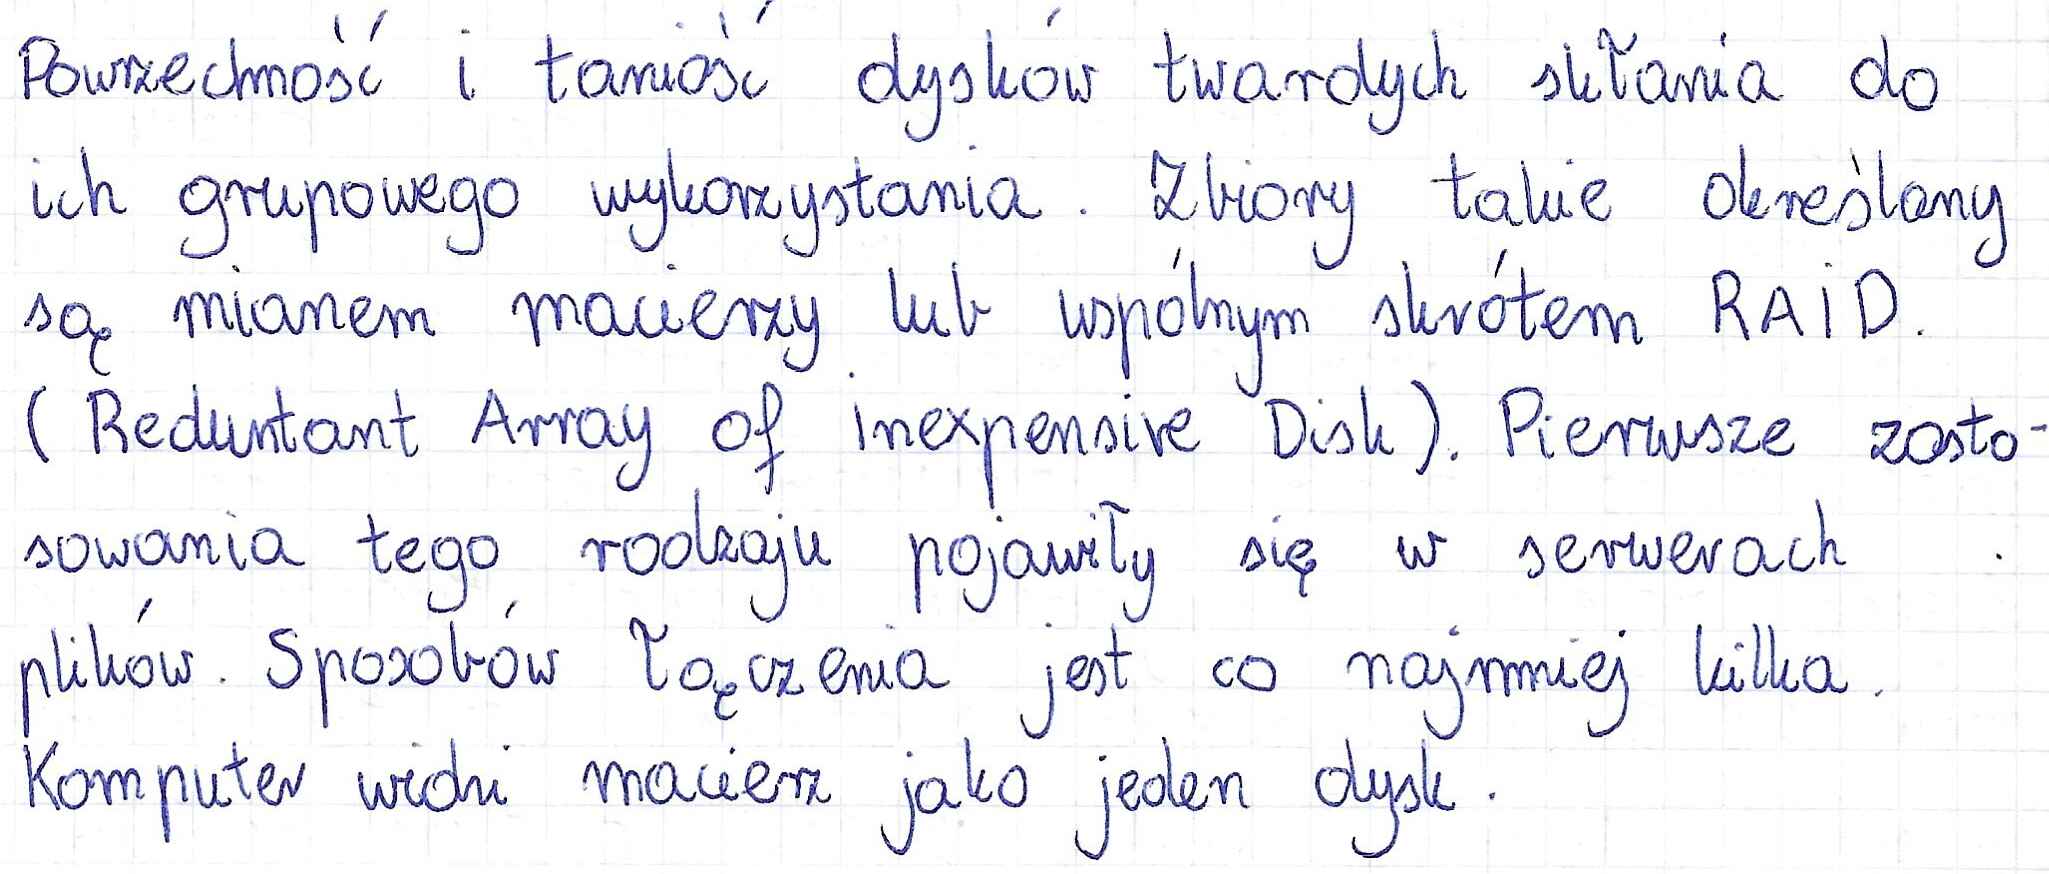 Powrzechność i taniość dysków twardych skłania do
ich grupowego wykorzystania. Zbiory takie określany
są mianem macierzy lub wspólnym skrótem RAID.
(Reduntant Array of inexpensive Disk). Pierwsze zasto-
sowania tego rodzaju pojawiły się w serwerach
plików. Sposobów łączenia jest co najmniej kilka.
Komputer widzi macierz jako jeden dysk.